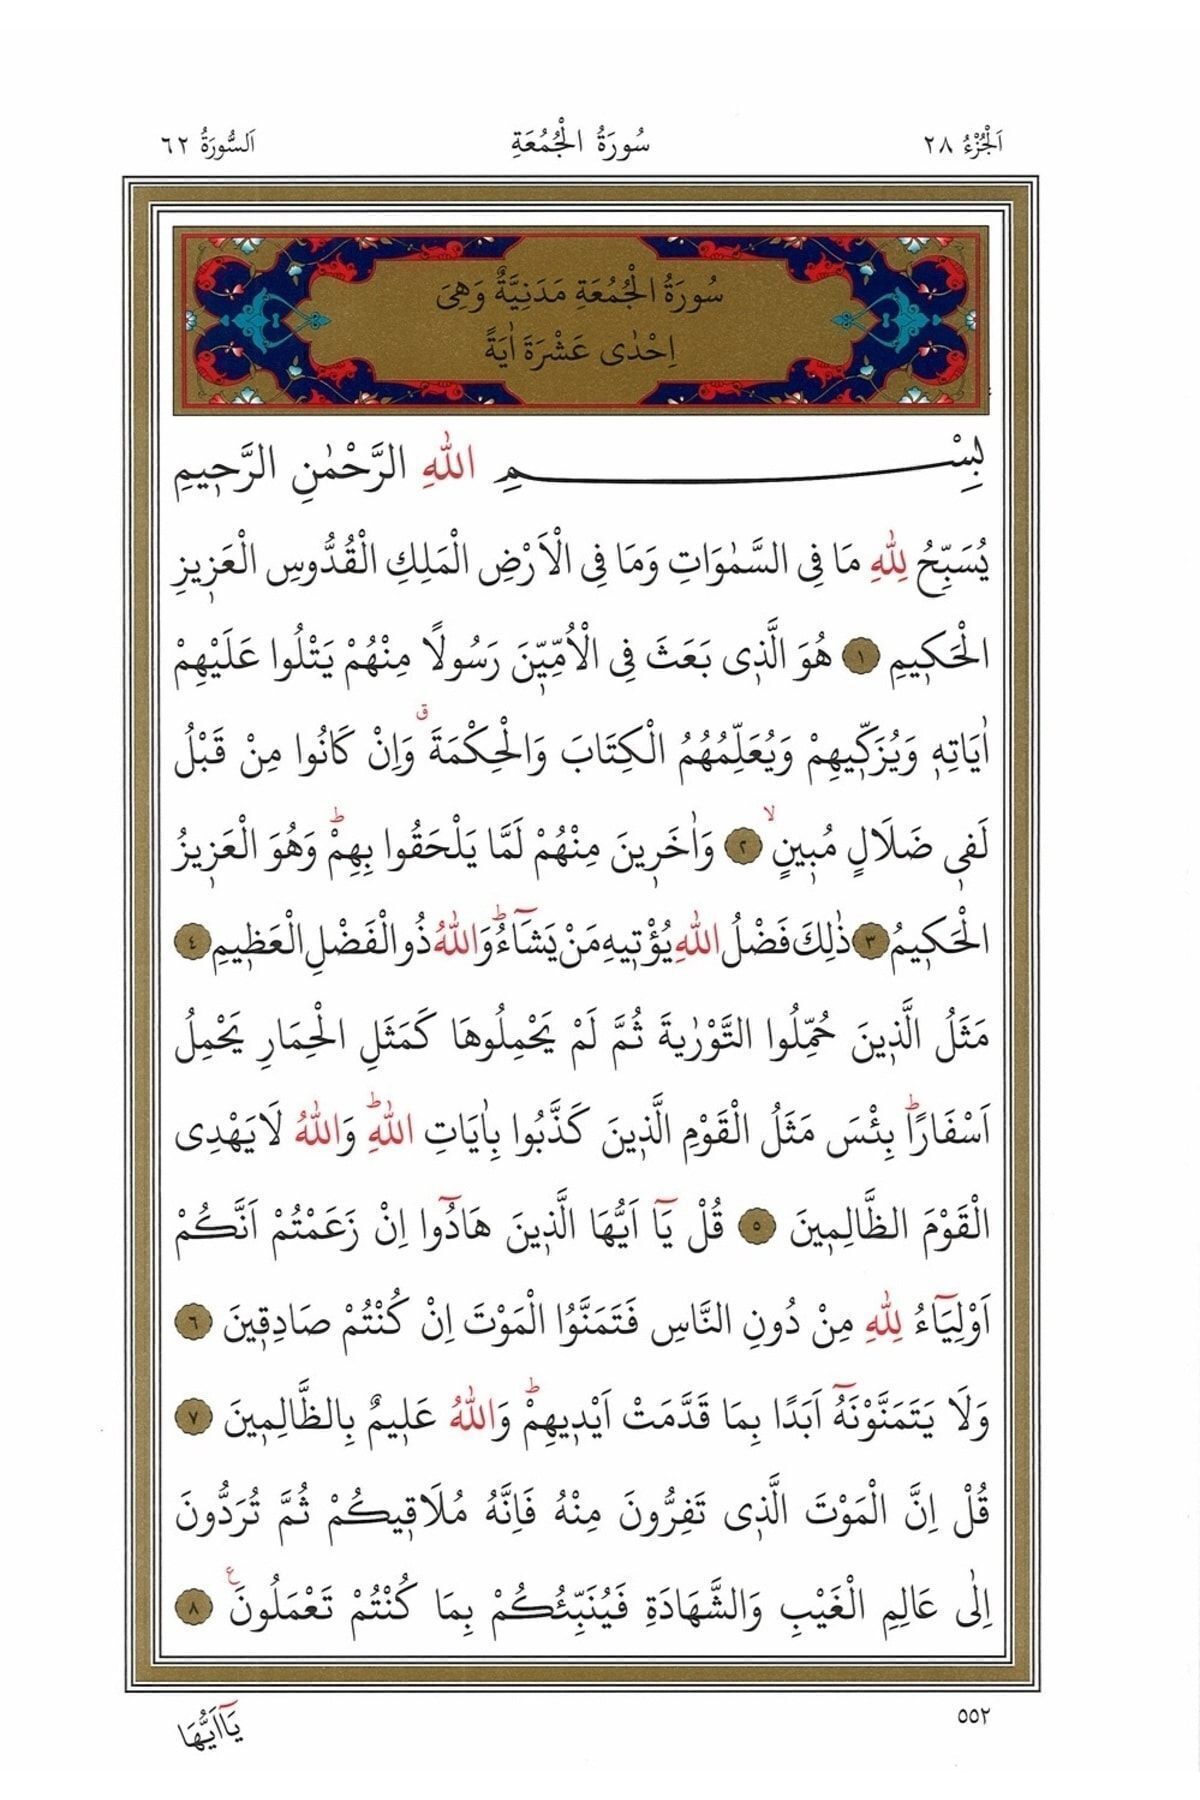 اَلْجُزْءُ ٢٨
سُورَةُ الْجُمُعَةِ
اَلسُّورَةُ ٦٢
سُورَةُ الْجُمُعَةِ مَدَنِيَّةٌ وَهِىَ
اِحْدٰى عَشْرَةَ اٰيَةً
بِسْمِ اللّٰهِ الرَّحْمٰنِ الرَّحٖيمِ
يُسَبِّحُ لِلّٰهِ مَا فِى السَّمٰوَاتِ وَمَا فِى الْاَرْضِ الْمَلِكِ الْقُدُّوسِ الْعَزٖيزِ
الْحَكٖيمِ ١ هُوَ الَّذٖى بَعَثَ فِى الْاُمِّيّٖنَ رَسُولًا مِنْهُمْ يَتْلُوا عَلَيْهِمْ
اٰيَاتِهٖ وَيُزَكّٖيهِمْ وَيُعَلِّمُهُمُ الْكِتَابَ وَالْحِكْمَةَ ࣗ وَاِنْ كَانُوا مِنْ قَبْلُ
لَفٖى ضَلَالٍ مُبٖينٍۙ ٢ وَاٰخَرٖينَ مِنْهُمْ لَمَّا يَلْحَقُوا بِهِمْؕ وَهُوَ الْعَزٖيزُ
الْحَكٖيمُ ٣ ذٰلِكَ فَضْلُ اللّٰهِ يُؤْتٖيهِ مَنْ يَشَٓاءُؕ وَاللّٰهُ ذُو الْفَضْلِ الْعَظٖيمِ ٤
مَثَلُ الَّذٖينَ حُمِّلُوا التَّوْرٰيةَ ثُمَّ لَمْ يَحْمِلُوهَا كَمَثَلِ الْحِمَارِ يَحْمِلُ
اَسْفَارًاؕ بِئْسَ مَثَلُ الْقَوْمِ الَّذٖينَ كَذَّبُوا بِاٰيَاتِ اللّٰهِؕ وَاللّٰهُ لَا يَهْدِى
الْقَوْمَ الظَّالِمٖينَ ٥ قُلْ يَٓا اَيُّهَا الَّذٖينَ هَادُٓوا اِنْ زَعَمْتُمْ اَنَّكُمْ
اَوْلِيَٓاءُ لِلّٰهِ مِنْ دُونِ النَّاسِ فَتَمَنَّوُا الْمَوْتَ اِنْ كُنْتُمْ صَادِقٖينَ ٦
وَلَا يَتَمَنَّوْنَهُٓ اَبَدًا بِمَا قَدَّمَتْ اَيْدٖيهِمْؕ وَاللّٰهُ عَلٖيمٌ بِالظَّالِمٖينَ ٧
قُلْ اِنَّ الْمَوْتَ الَّذٖى تَفِرُّونَ مِنْهُ فَاِنَّهُ مُلَاقٖيكُمْ ثُمَّ تُرَدُّونَ
اِلٰى عَالِمِ الْغَيْبِ وَالشَّهَادَةِ فَيُنَبِّئُكُمْ بِمَا كُنْتُمْ تَعْمَلُونَ ع ٨
٥٥٢
يَٓا اَيُّهَا